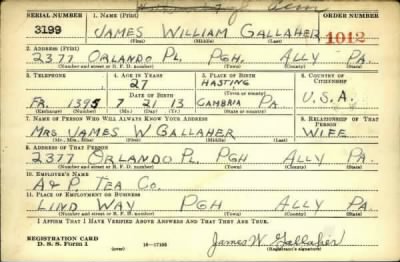 SERIAL NUMBER 1. NAME (Print) ORDER NUMBER
3199 JAMES WILLIAM GALLAHER 1012
(First) (Middle) (Last)
2. ADDRESS (Print)
2377 ORLANDO PL. PGH. ALLY PA.
(Number and street or R. F. D. number) (Town) (County) (State)
3. TELEPHONE 4. AGE IN YEARS 5. PLACE OF BIRTH 6. COUNTRY OF CITIZENSHIP
27 HASTING
DATE OF BIRTH (Town or county)
FR. 1395 7 21 13 CAMBRIA PA. U.S.A.
(Exchange) (Number) (Mo.) (Day) (Yr.) (State or country)
7. NAME OF PERSON WHO WILL ALWAYS KNOW YOUR ADDRESS 8. RELATIONSHIP OF THAT PERSON
MRS JAMES W GALLAHER WIFE
(Mr., Mrs., Miss) (First) (Middle) (Last)
9. ADDRESS OF THAT PERSON
2377 ORLANDO PL. PGH ALLY PA.
(Number and street or R. F. D. number) (Town) (County) (State)
10. EMPLOYER'S NAME
A & P. TEA CO.
11. PLACE OF EMPLOYMENT OR BUSINESS
LIND WAY PGH ALLY PA.
(Number and street or R. F. D. number) (Town) (County) (State)
I AFFIRM THAT I HAVE VERIFIED ABOVE ANSWERS AND THAT THEY ARE TRUE.
REGISTRATION CARD
D. S. S. Form 1 16—17105 James W. Gallaher
(Registrant's signature)